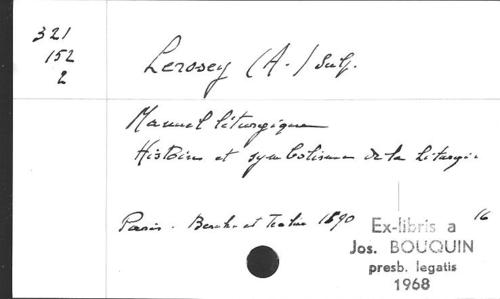 321
152
2
Lerosey (A.) Sulp.
Manuel liturgique
Histoire et symbolisme de la liturgie
Paris. Berche et Tralin 1890 16
Ex-libris a
Jos. BOUQUIN
presb. legatis
1968